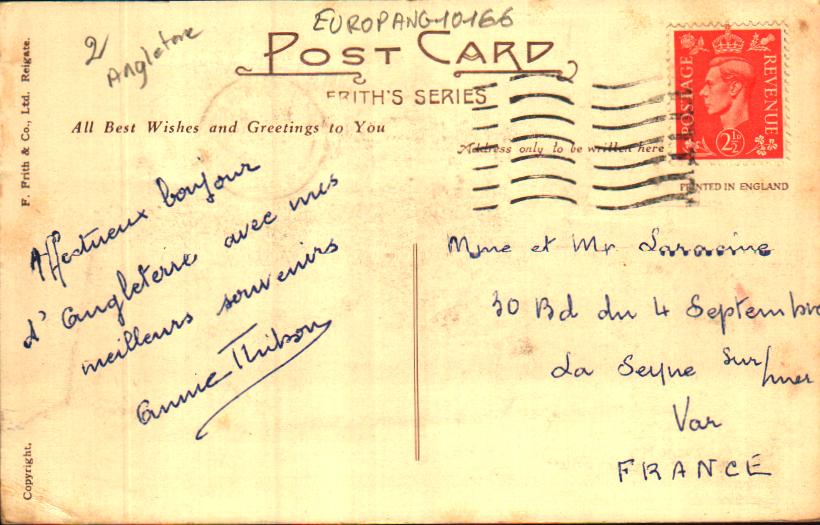 EUROPANG-10166
2
Angleterre
POST CARD
FRITH'S SERIES
All Best Wishes and Greetings to You
Address only to be written here
POSTAGE
REVENUE
2½
PRINTED IN ENGLAND
F. Frith & Co., Ltd. Reigate.
Copyright.
Affectueux bonjour
d'Angleterre avec mes
meilleurs souvenirs
Annie
Mme et Mr
30 Bd du 4 Septembre
La Seyne sur/mer
Var
FRANCE